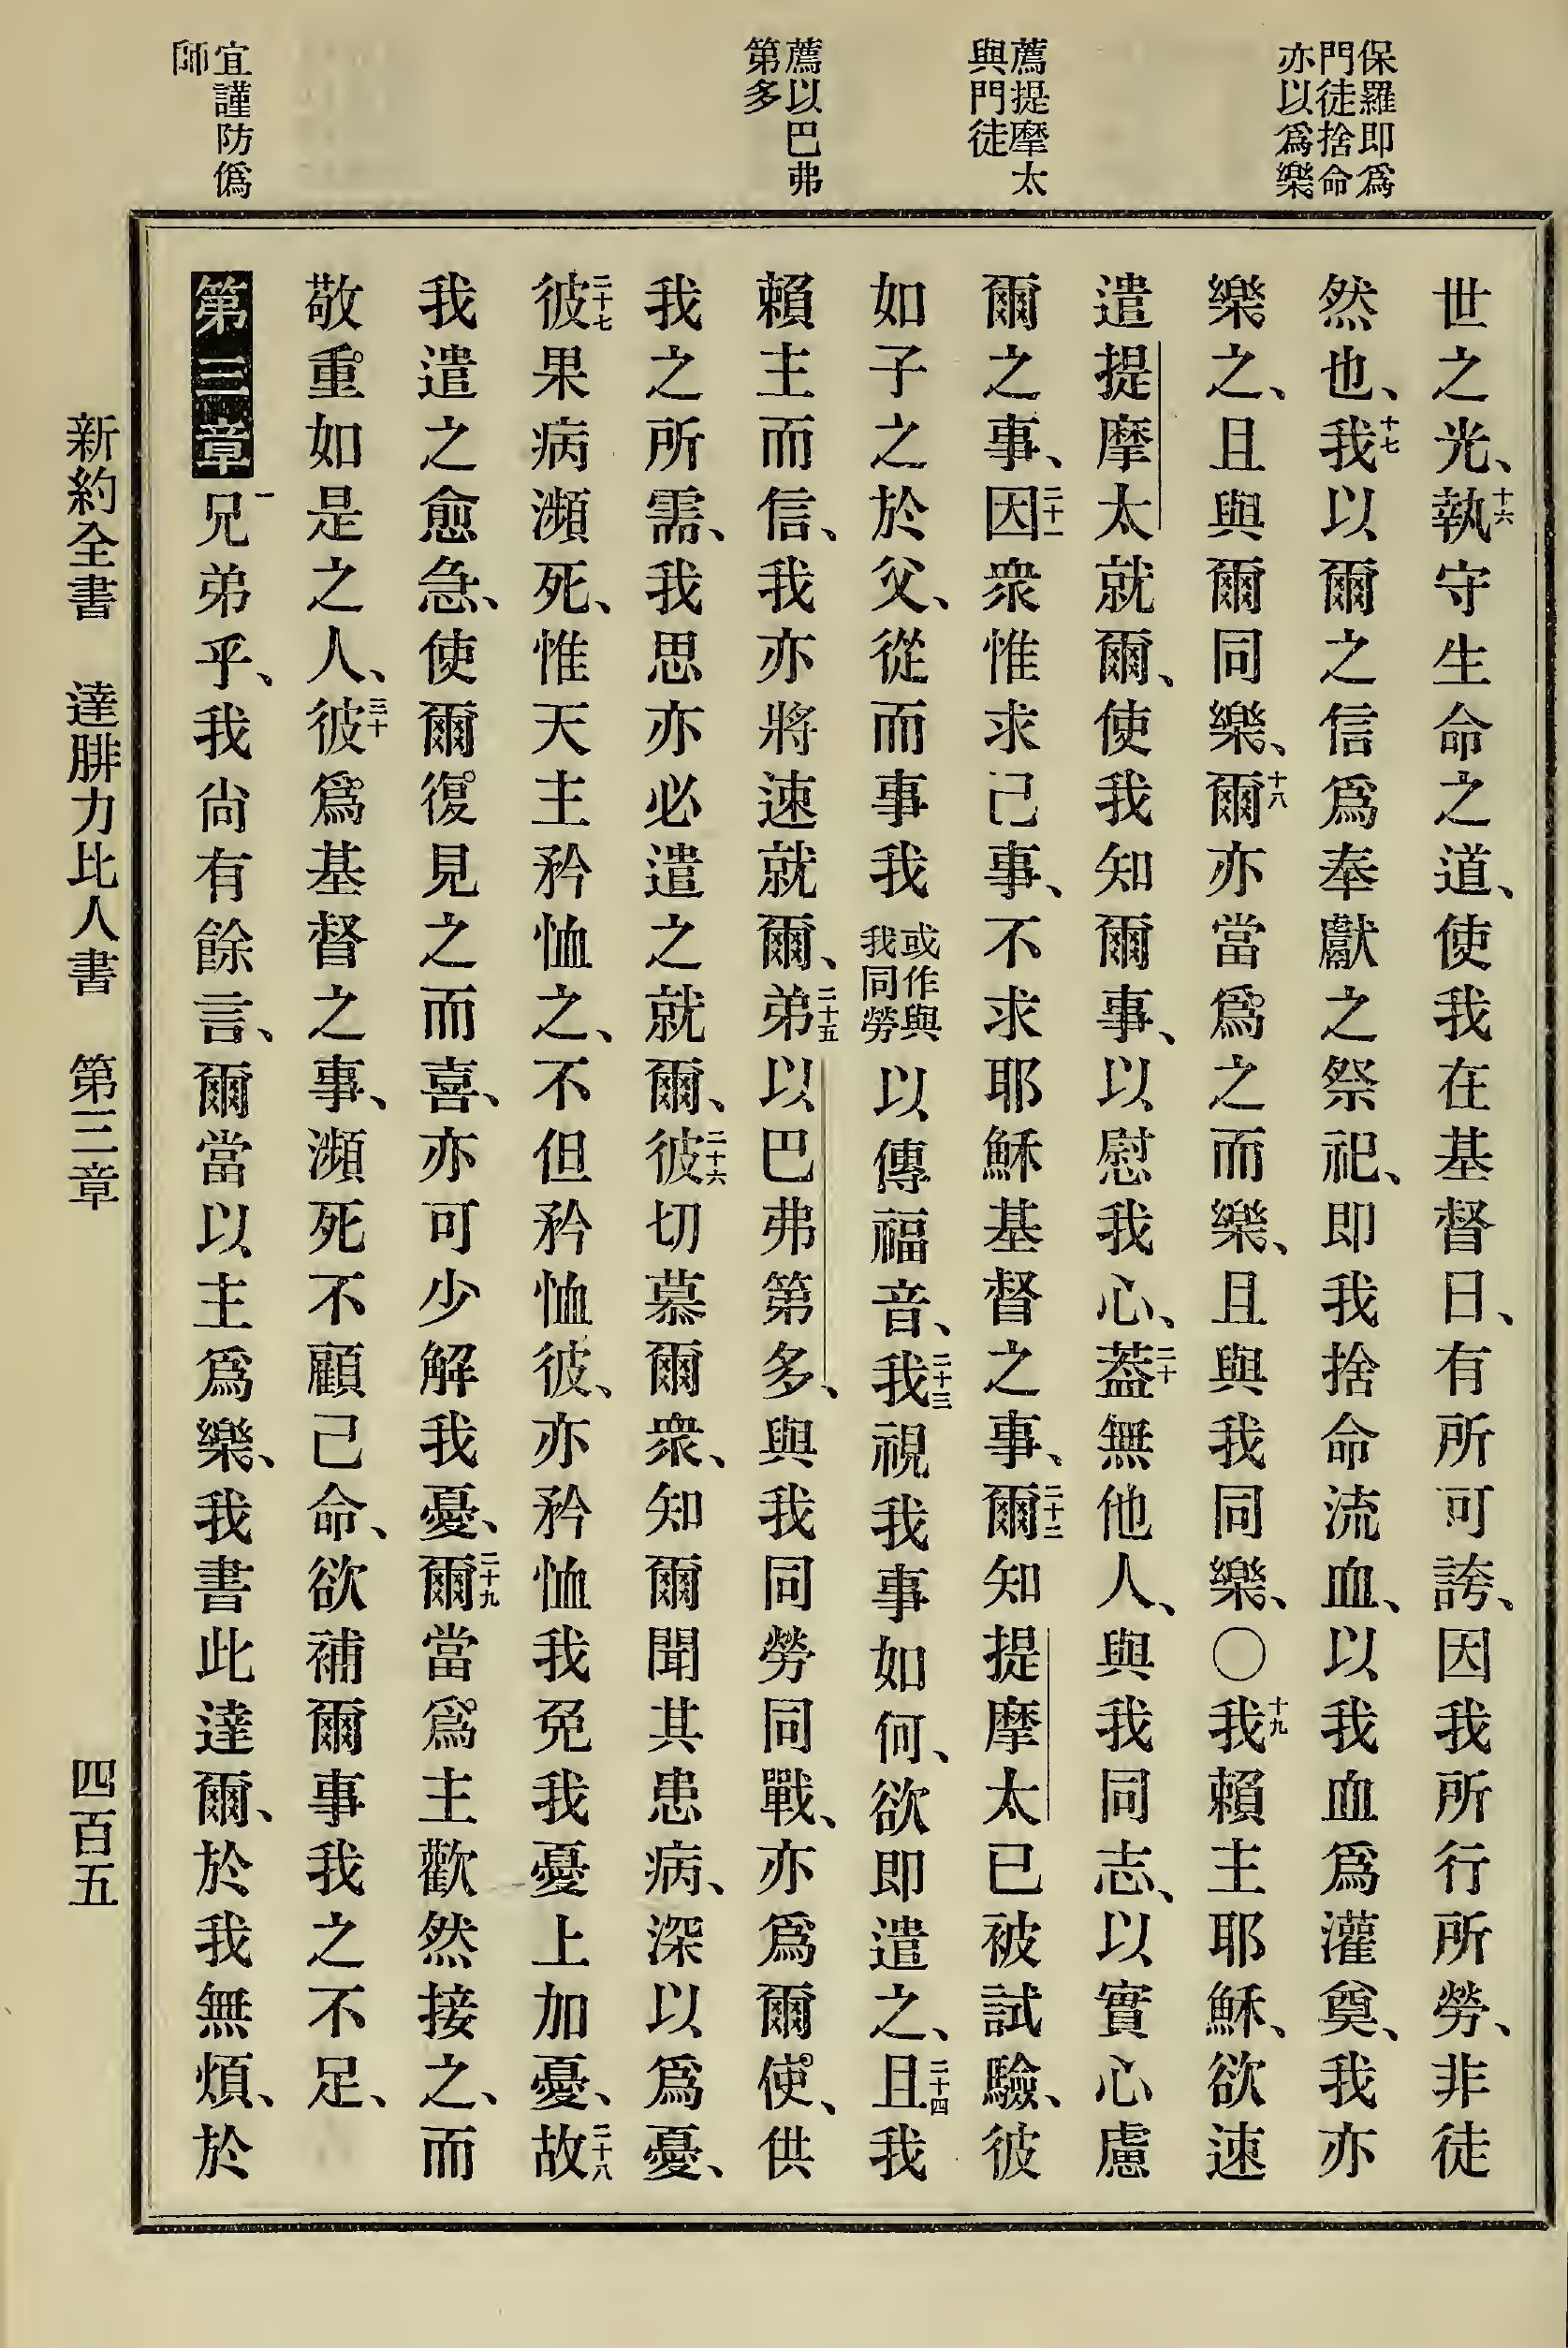 保羅即爲
門徒捨命
亦以爲樂
薦提摩太
與門徒
薦以巴弗
第多
宜謹防僞
師
世之光、十六執守生命之道、使我在基督日、有所可誇、因我所行所勞、非徒
然也、十七我以爾之信爲奉獻之祭祀、即我捨命流血、以我血爲灌奠、我亦
樂之、且與爾同樂、十八爾亦當爲之而樂、且與我同樂、〇十九我賴主耶穌、欲速
遣提摩太就爾、使我知爾事、以慰我心、二十蓋無他人、與我同志、以實心慮
爾之事、二十一因衆惟求己事、不求耶穌基督之事、二十二爾知提摩太已被試驗、彼
如子之於父、從而事我或作與我同勞以傳福音、二十三我視我事如何、欲即遣之、二十四且我
賴主而信、我亦將速就爾、二十五弟以巴弗第多、與我同勞同戰、亦爲爾使、供
我之所需、我思亦必遣之就爾、二十六彼切慕爾衆、知爾聞其患病、深以爲憂、
二十七彼果病瀕死、惟天主矜恤之、不但矜恤彼、亦矜恤我、免我憂上加憂、二十八故
我遣之愈急、使爾復見之而喜、亦可少解我憂、二十九爾當爲主歡然接之、而
敬重如是之人、三十彼爲基督之事、瀕死不顧己命、欲補爾事我之不足、
第三章 一兄弟乎、我尙有餘言、爾當以主爲樂、我書此達爾、於我無煩、於
新約全書 達腓力比人書 第三章 四百五